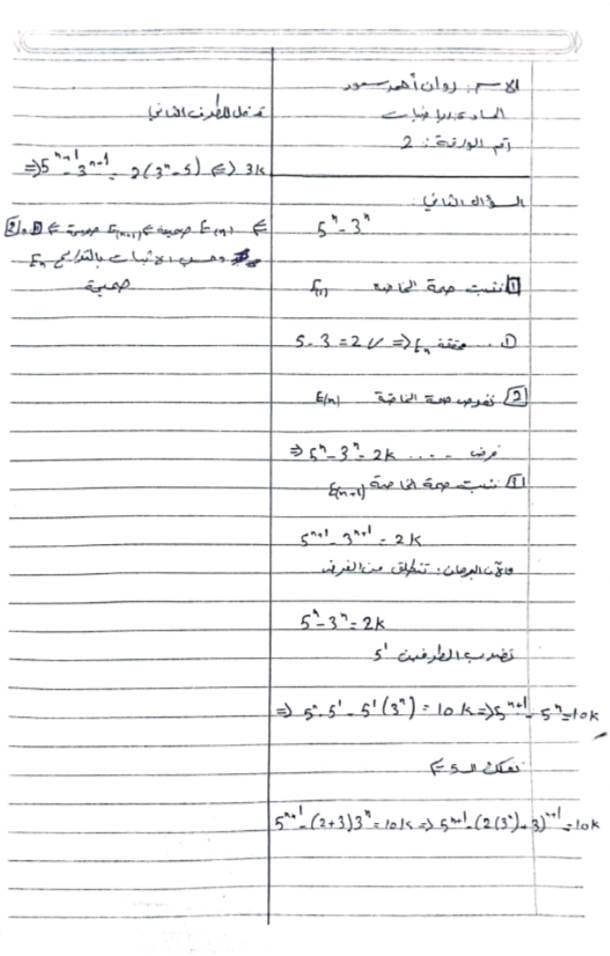 الاسم: روان أحمد سعود
المادة: رياضيات
رقم الورقة: 2
السؤال الثاني:
5ⁿ - 3ⁿ
1 نثبت صحة الخاصة E(1)
5 - 3 = 2 ✓ ⇒ Eₙ محققة ... ①
2 نفرض صحة الخاصة E(n)
⇒ 5ⁿ - 3ⁿ = 2k .... فرض
نثبت صحة الخاصة E(n+1)
5ⁿ⁺¹ - 3ⁿ⁺¹ = 2k
والآن البرهان: ننطلق من الفرض
5ⁿ - 3ⁿ = 2k
نضرب الطرفين 5¹
⇒ 5ⁿ·5¹ - 5¹(3ⁿ) = 10k ⇒ 5ⁿ⁺¹ - 5ⁿ = 10k
نفكك الـ 5 ⇐
5ⁿ⁺¹ - (2+3)3ⁿ = 10k ⇒ 5ⁿ⁺¹ - (2(3ⁿ) + 3)ⁿ⁺¹ = 10k
للطرف الثاني
⇒ 5ⁿ⁺¹ - 3ⁿ⁺¹ = 2(3ⁿ - 5) ⇔ 3k
⇐ E(n) صحيحة ⇐ E(n+1) صحيحة ⇐
وحسب الاثبات بالتدريج Eₙ
صحيحة